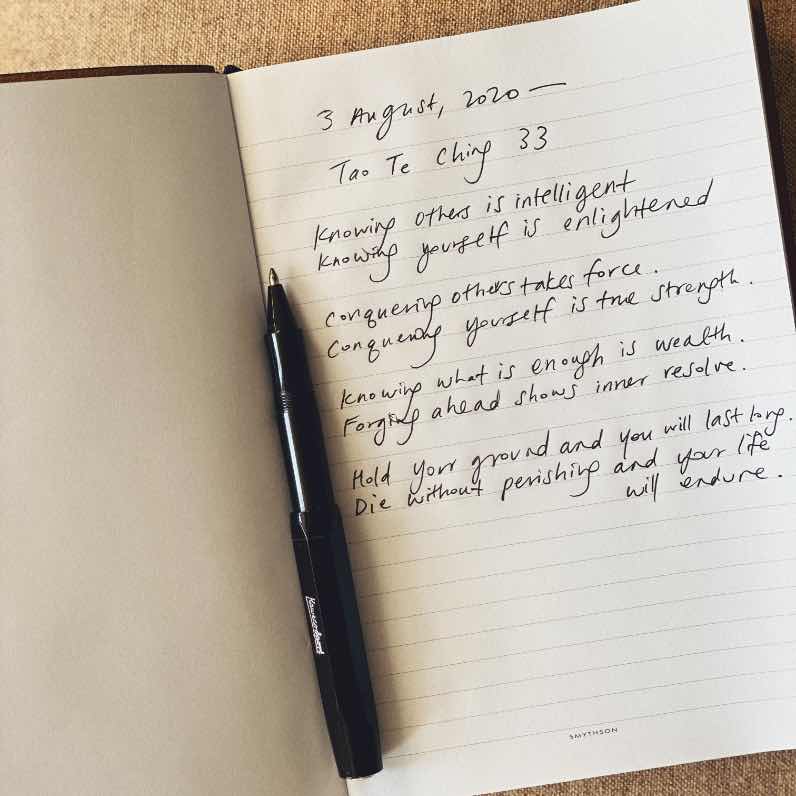 3 August, 2020 —
Tao Te Ching 33
Knowing others is intelligent
Knowing yourself is enlightened
Conquering others takes force.
Conquering yourself is true strength.
Knowing what is enough is wealth.
Forging ahead shows inner resolve.
Hold your ground and you will last long.
Die without perishing and your life
will endure.
Kaweco Sport
SMYTHSON